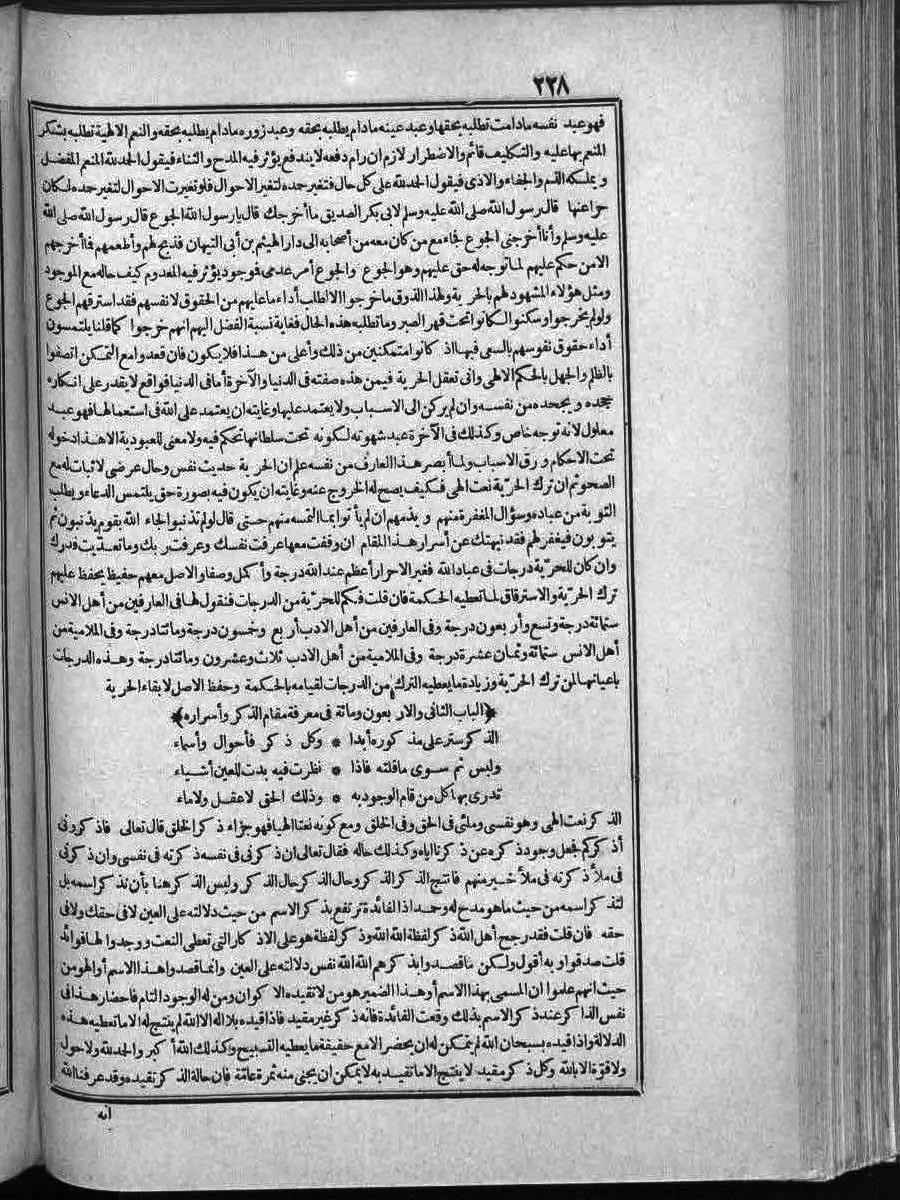 ٢٢٨
فهو عبد نفسه مادامت تطلبه بحقها وعبد عينه مادام يطلبه بحقه وعبد زوره مادام يطلبه بحقه والنعم الالهية تطلبه بشكر
المنعم بها عليه والتكليف قائم والاضطرار لازم ان رام دفعه لايندفع يؤثر فيه المدح والثناء فيقول الحمد لله المنعم المفضل
ويملكه الذم والجفاء والاذى فيقول الحمد لله على كل حال فتغير حده لتغير الاحوال فلو تغيرت الاحوال لتغير حده لكان
حرا عنها قال رسول الله صلى الله عليه وسلم لابى بكر الصديق ما أخرجك قال يارسول الله الجوع قال رسول الله صلى الله
عليه وسلم وأنا أخرجنى الجوع فجاء مع من كان معه من أصحابه الى دار الهيثم بن أبى التيهان فذبح لهم وأطعمهم فما أخرجهم
الا من حكم عليهم لما توجه له حق عليهم وهو الجوع والجوع أمر عدمى فوجود يؤثر فيه المعدوم كيف حاله مع الموجود
ومثل هؤلاء المشهود لهم بالحرية ولهذا الذوق ما خرجوا الا لطلب أداء ما عليهم من الحقوق لانفسهم فقد استرقهم الجوع
ولو لم يخرجوا وسكنوا لكانوا تحت قهر الصبر وما تطلبه هذه الحال فغاية نسبة الفضل اليهم انهم خرجوا كما قلنا يلتمسون
أداء حقوق نفوسهم بالسعى فيها اذ كانوا متمكنين من ذلك وأعلى من هذا فلا يكون فان قعدوا مع التمكن اتصفوا
بالظلم والجهل بالحكم الالهى وانى تعقل الحرية فيمن هذه صفته فى الدنيا والآخرة أما فى الدنيا فواقع لايقدر على انكاره
جحده ويجحده من نفسه وان لم يركن الى الاسباب ولا يعتمد عليها وغايته ان يعتمد على الله فى استعمالها فهو عبد
معلول لانه توجه خاص وكذلك فى الآخرة عبد شهوته لكونه تحت سلطانها تحكم فيه ولا معنى للعبودية الا هذا دخوله
تحت الاحكام ورق الاسباب ولما أبصر هذا العارف من نفسه علم ان الحرية حديث نفس وحال عرضى لا ثبات له مع
الصحو ثم ان ترك الحرية نعت الهى فكيف يصح له الخروج عنه وغايته ان يكون فيه بصورة حق يلتمس الدعاء ويطلب
التوبة من عباده وسؤال المغفرة منهم ويذمهم ان لم يأتوا بما التمسه منهم حتى قال لو لم تذنبوا لجاء الله بقوم يذنبون ثم
يتوبون فيغفر لهم فقد نبهتك عن أسرار هذا المقام ان وقفت معها عرفت نفسك وعرفت ربك وما تعديت قدرك
وان كان للحرية درجات فى عباد الله فغير الاحرار أعظم عند الله درجة وأكمل وصفا والاصل معهم حفيظ يحفظ عليهم
ترك الحرية والاسترقاق لما تعطيه الحكمة فان قلت فكم للحرية من الدرجات فنقول لها فى العارفين من أهل الانس
ستمائة درجة وتسع وأربعون درجة وفى العارفين من أهل الادب أربع وخمسون درجة ومائتا درجة وفى الملامية من
أهل الانس ستمائة وثمان عشرة درجة وفى الملامية من أهل الادب ثلاث وعشرون ومائتا درجة وهذه الدرجات
باعيانها لمن ترك الحرية وزيادة ما يعطيه الترك من الدرجات لقيامه بالحكمة وحفظ الاصل لابقاء الحرية
﴿الباب الثانى والاربعون ومائة فى معرفة مقام الذكر وأسراره﴾
الذكر ستر على مذكوره أبدا * وكل ذكر فأحوال وأسماء
وليس ثم سوى ما قلته فاذا * نظرت فيه بدت للعين أشياء
تدرى بها كل من قام الوجود به * وذلك الحق لا عقل ولا ماء
الذكر نعت الهى وهو نفسى وملئى فى الحق وفى الخلق ومع كونه نعتا الهيا فهو جزاء ذكر الخلق قال تعالى فاذكرونى
أذكركم فجعل وجود ذكره عن ذكرنا اياه وكذلك حاله فقال تعالى ان ذكرنى فى نفسه ذكرته فى نفسى وان ذكرنى
فى ملأ ذكرته فى ملأ خير منهم فانتج الذكر الذكر وحال الذكر حال الذكر وليس الذكر هنا بأن تذكر اسمه بل
لتذكر اسمه من حيث ما هو مدح له وحمد اذ الفائدة ترتفع بذكر الاسم من حيث دلالته على العين لا فى حقك ولا فى
حقه فان قلت فقد رجح أهل الله ذكر لفظة الله الله وذكر لفظة هو على الاذكار التى تعطى النعت ووجدوا لها فوائد
قلت صدقوا وبه أقول ولكن ما قصدوا بذكرهم الله الله نفس دلالته على العين وانما قصدوا هذا الاسم أو الهو من
حيث انهم علموا ان المسمى بهذا الاسم أو هذا الضمير هو من لا تقيده الاكوان ومن له الوجود التام فاحضار هذا فى
نفس الذاكر عند ذكر الاسم بذلك وقعت الفائدة فانه ذكر غير مقيد فاذا قيده بلا اله الا الله لم ينتج له الا ما تعطيه هذه
الدلالة واذا قيده بسبحان الله لم يتمكن له ان يحضر الا مع حقيقة ما يعطيه التسبيح وكذلك الله أكبر والحمد لله ولا حول
ولا قوة الا بالله وكل ذكر مقيد لا ينتج الا ما تقيد به لا يمكن أن يجنى منه ثمرة عامة فان حالة الذكر تقيده وقد عرفنا الله
انه